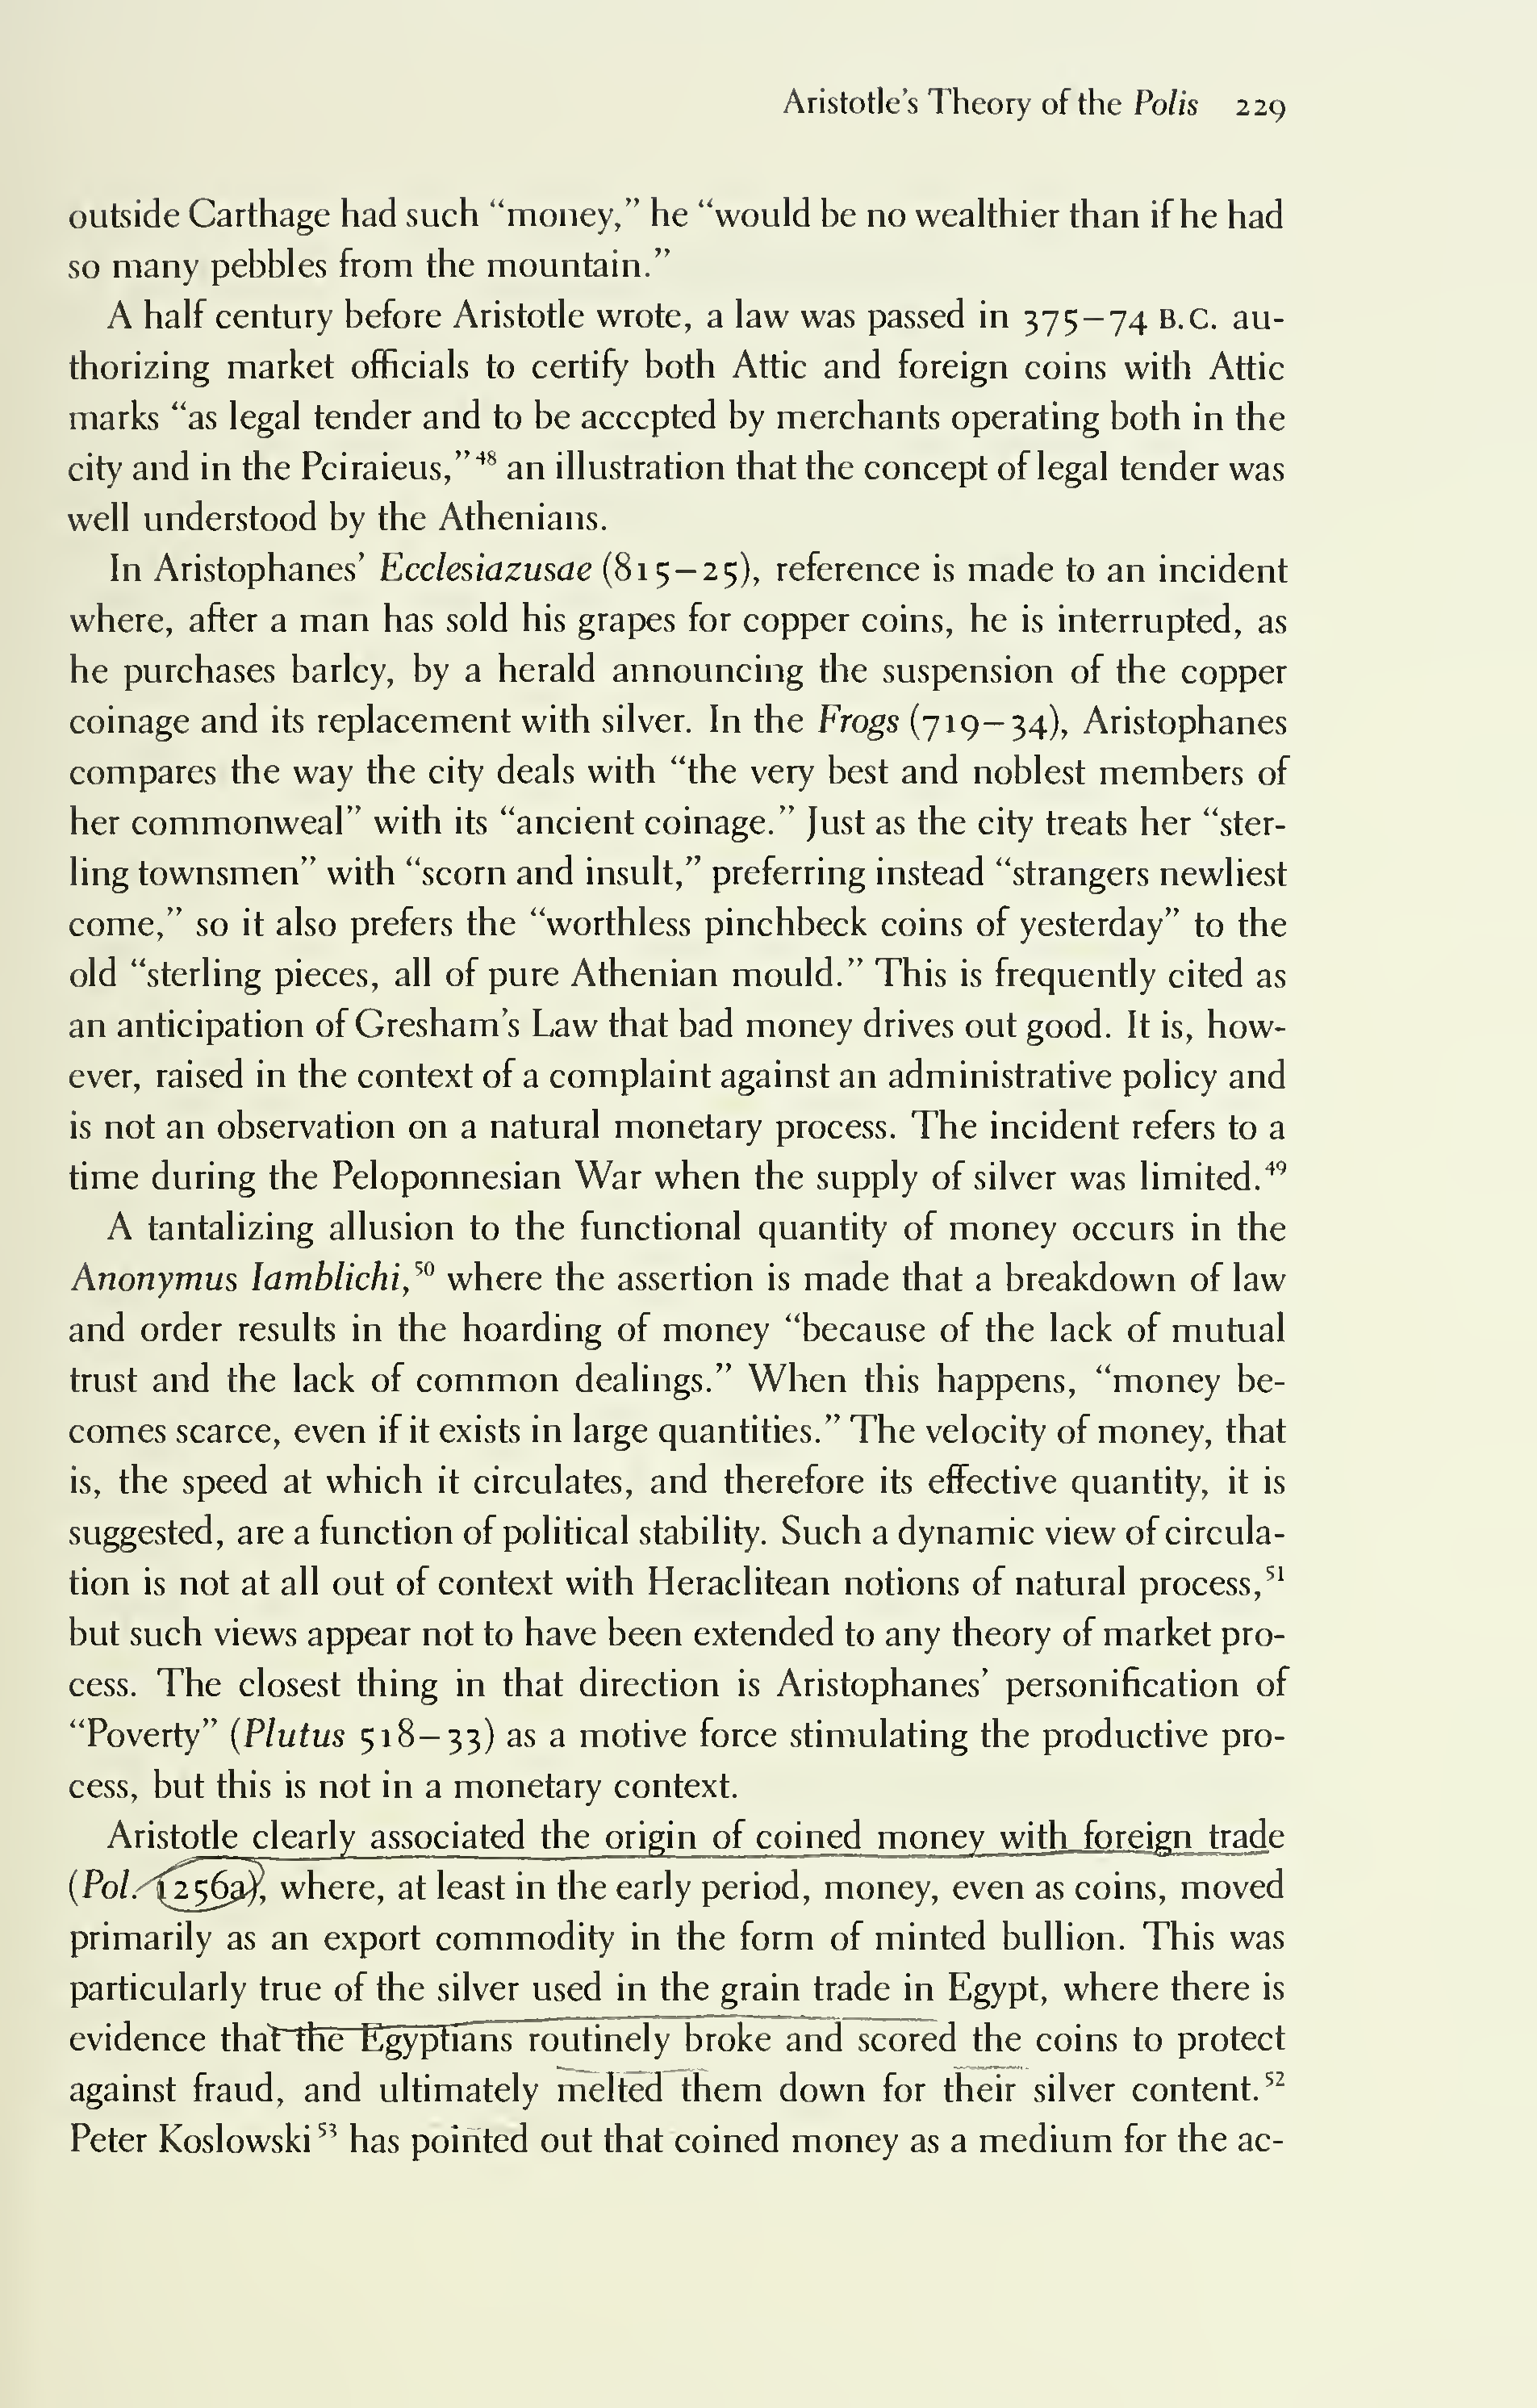 Aristotle's Theory of the Polis 229
outside Carthage had such “money,” he “would be no wealthier than if he had
so many pebbles from the mountain.”
A half century before Aristotle wrote, a law was passed in 375–74 B.C. au-
thorizing market officials to certify both Attic and foreign coins with Attic
marks “as legal tender and to be acccpted by merchants operating both in the
city and in the Pciraieus,”48 an illustration that the concept of legal tender was
well understood by the Athenians.
In Aristophanes’ Ecclesiazusae (815–25), reference is made to an incident
where, after a man has sold his grapes for copper coins, he is interrupted, as
he purchases barlcy, by a herald announcing the suspension of the copper
coinage and its replacement with silver. In the Frogs (719–34), Aristophanes
compares the way the city deals with “the very best and noblest members of
her commonweal” with its “ancient coinage.” Just as the city treats her “ster-
ling townsmen” with “scorn and insult,” preferring instead “strangers newliest
come,” so it also prefers the “worthless pinchbeck coins of yesterday” to the
old “sterling pieces, all of pure Athenian mould.” This is frequently cited as
an anticipation of Gresham’s Law that bad money drives out good. It is, how-
ever, raised in the context of a complaint against an administrative policy and
is not an observation on a natural monetary process. The incident refers to a
time during the Peloponnesian War when the supply of silver was limited.49
A tantalizing allusion to the functional quantity of money occurs in the
Anonymus Iamblichi,50 where the assertion is made that a breakdown of law
and order results in the hoarding of money “because of the lack of mutual
trust and the lack of common dealings.” When this happens, “money be-
comes scarce, even if it exists in large quantities.” The velocity of money, that
is, the speed at which it circulates, and therefore its effective quantity, it is
suggested, are a function of political stability. Such a dynamic view of circula-
tion is not at all out of context with Heraclitean notions of natural process,51
but such views appear not to have been extended to any theory of market pro-
cess. The closest thing in that direction is Aristophanes’ personification of
“Poverty” (Plutus 518–33) as a motive force stimulating the productive pro-
cess, but this is not in a monetary context.
Aristotle clearly associated the origin of coined money with foreign trade
(Pol. 1256a), where, at least in the early period, money, even as coins, moved
primarily as an export commodity in the form of minted bullion. This was
particularly true of the silver used in the grain trade in Egypt, where there is
evidence that the Egyptians routinely broke and scored the coins to protect
against fraud, and ultimately melted them down for their silver content.52
Peter Koslowski53 has pointed out that coined money as a medium for the ac-